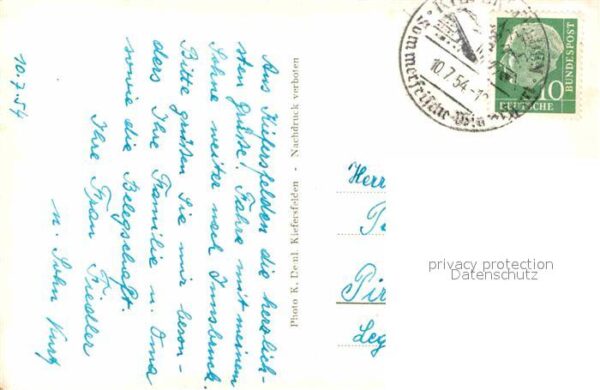 10.7.54
Aus Kiefersfelden die herzlich-
sten Grüße! Fahre mit meinem
Sohne weiter nach Innsbruck.
Bitte grüßen Sie mir beson-
ders Ihre Familie u. Oma
sowie die Belegschaft.
Ihre Frau Friedler
u. Sohn Kurt
Photo K. Denl, Kiefersfelden - Nachdruck verboten
10.7.54
Sommerfrische
10
DEUTSCHE
BUNDESPOST
Herr
Pir
Leg
privacy protection
Datenschutz